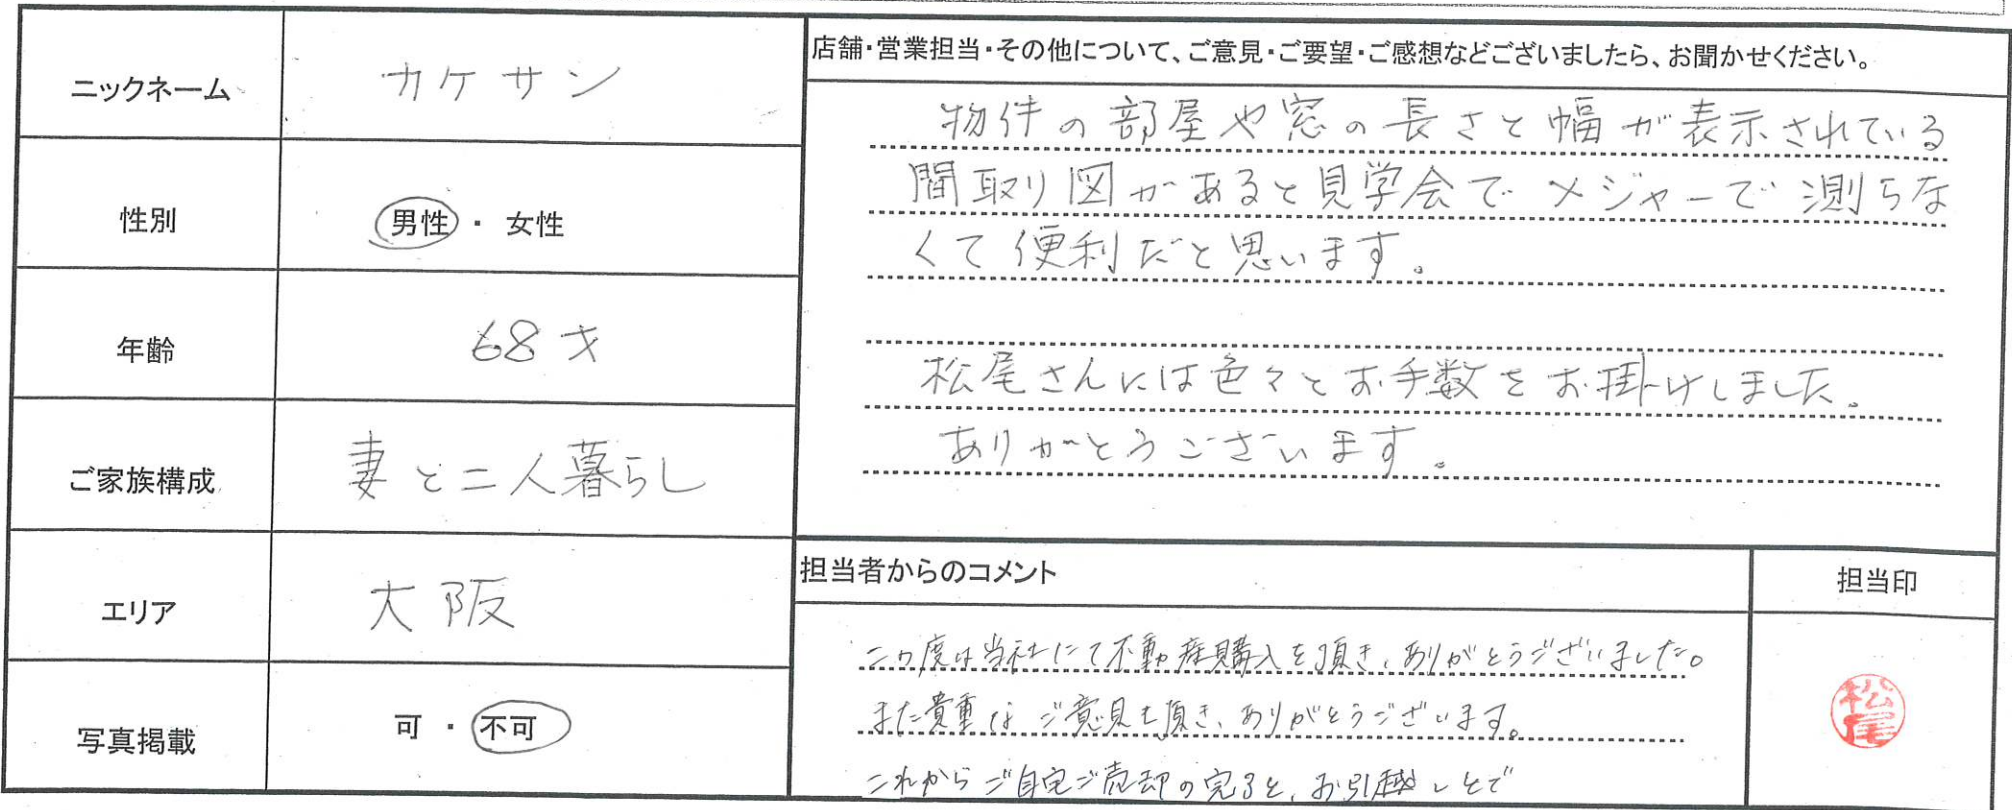 ニックネーム
カケサン
性別
男性 ・ 女性
年齢
68才
ご家族構成
妻と二人暮らし
エリア
大阪
写真掲載
可 ・ 不可
店舗・営業担当・その他について、ご意見・ご要望・ご感想などございましたら、お聞かせください。
物件の部屋や窓の長さと幅が表示されている
間取り図があると見学会でメジャーで測らな
くて便利だと思います。
松尾さんには色々とお手数をお掛けしました。
ありがとうございます。
担当者からのコメント
この度は当社にて不動産購入を頂き、ありがとうございました。
また貴重なご意見も頂き、ありがとうございます。
これからご自宅ご売却の完了と、お引越しとで
担当印
松尾